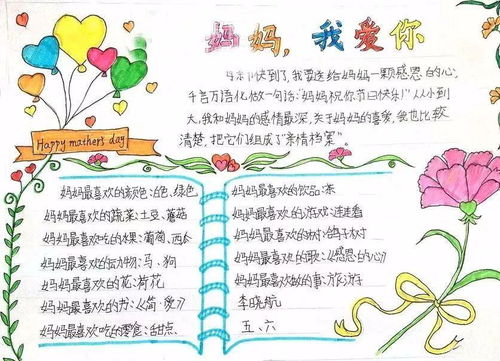 妈妈，我爱你
Happy mather's day
快到了，我要送给妈妈一颗感恩的心，
千言万语化做一句话：“妈妈祝你节日快乐！”从小到
大，我和妈妈的感情最深，关于妈妈的喜爱，我也比较
清楚，把它们组成了“亲情档案”。
妈妈最喜欢的颜色：白色、绿色
妈妈最喜欢的蔬菜：土豆、蘑菇
妈妈最喜欢吃的水果：葡萄、西
妈妈最喜欢的动物：马、狗
妈妈最喜欢的花：荷花
妈妈最喜欢的书：《简·爱》
妈妈最喜欢吃的零食：甜点
妈妈最喜欢的饮品：茶
妈妈最喜欢的游戏：连连看
妈妈最喜欢的树：鸽子树
妈妈最喜欢的歌：《感恩的心》
妈妈最喜欢做的事：旅游
李晓航
五、六